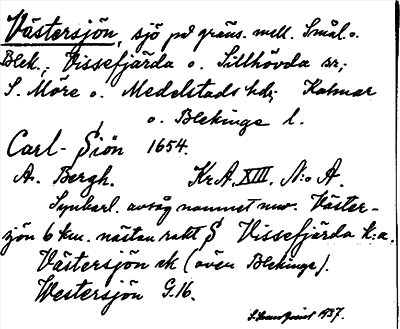 Västersjön, sjö på gräns. mell. Smål. o.
Blek., Vissefjärda o. Sillhövda sr;
S. Möre o. Medelstads hd; Kalmar
o. Blekinge l.
Carl-Siön 1654.
A. Bergh. Kr.A. XIII. N:o A.
Synbarl. avsåg namnet nuv. Väster-
sjön 6 km. nästan rakt S Vissefjärda k:a.
Västersjön ek (även Blekinge).
Westersjön G.16.
1937.